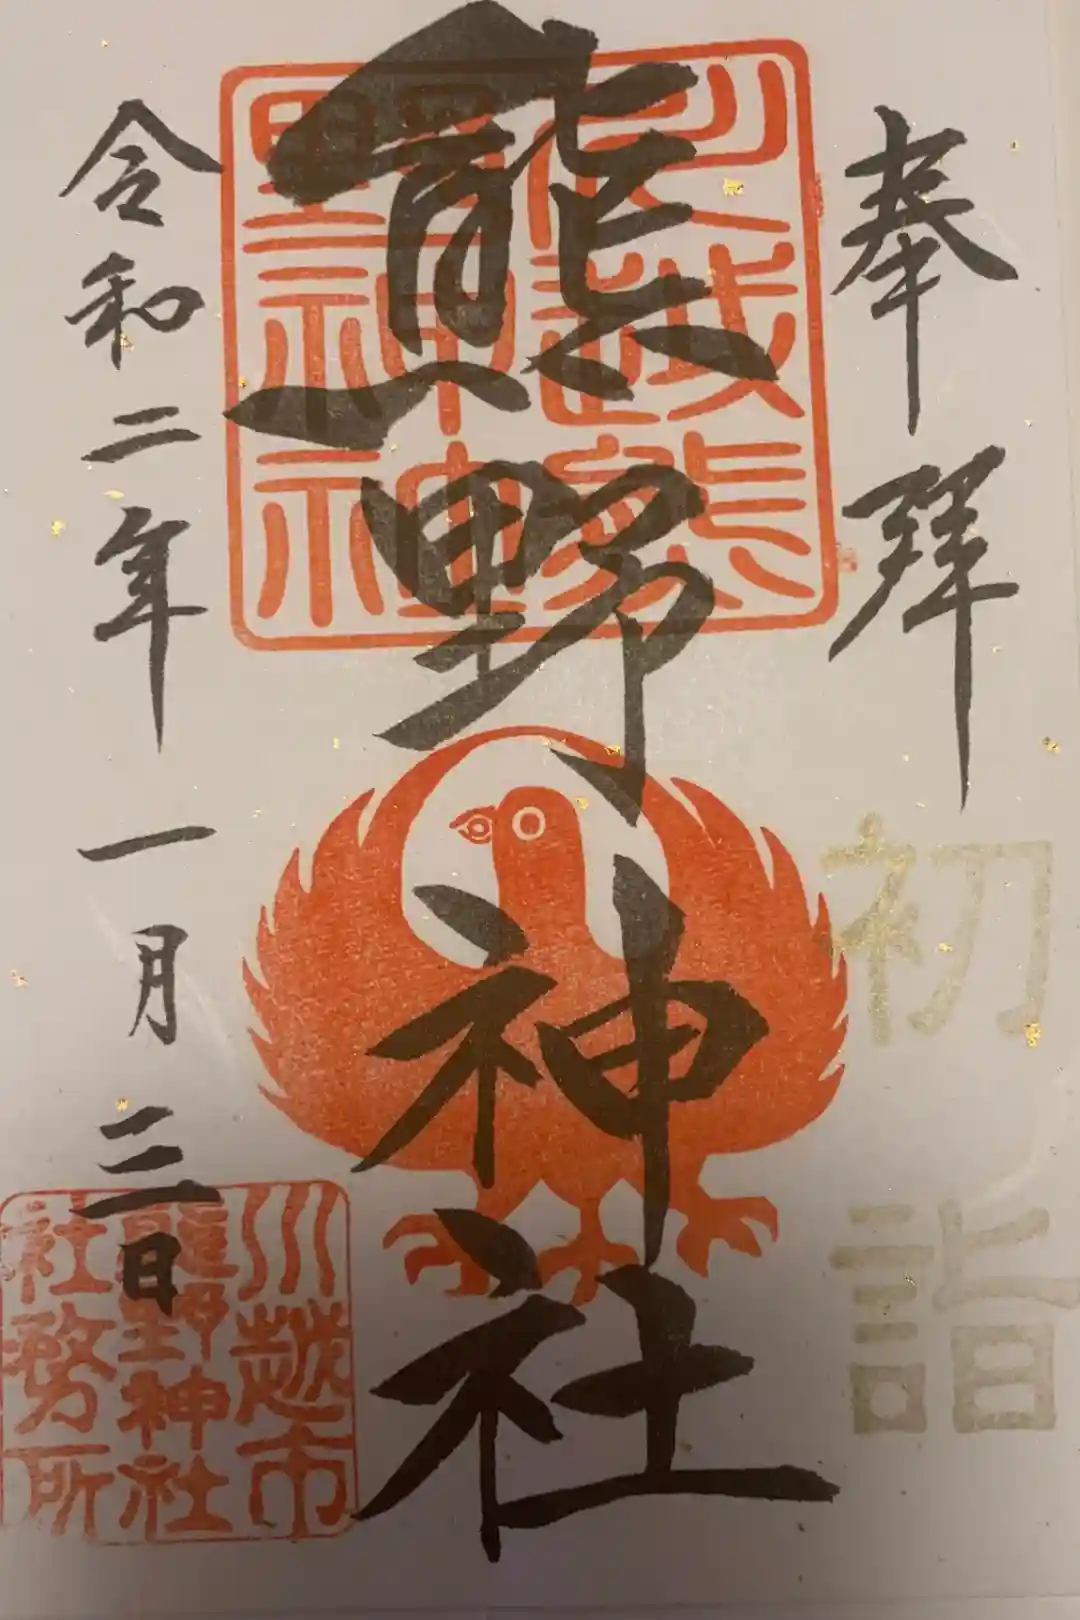 奉拝
初詣
熊野神社
川越熊野神社
令和二年一月三日
川越市
熊野神社
社務所